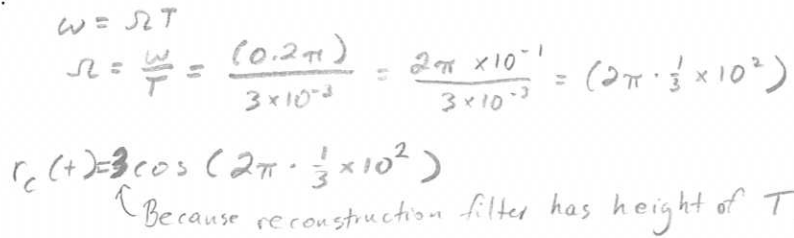 ω = ΩT
Ω = ω/T = (0.2π)/(3×10⁻³) = (2π ×10⁻¹)/(3×10⁻³) = (2π · 1/3 × 10²)
r_c(t)=3cos(2π · 1/3 ×10²)
Because reconstruction filter has height of T